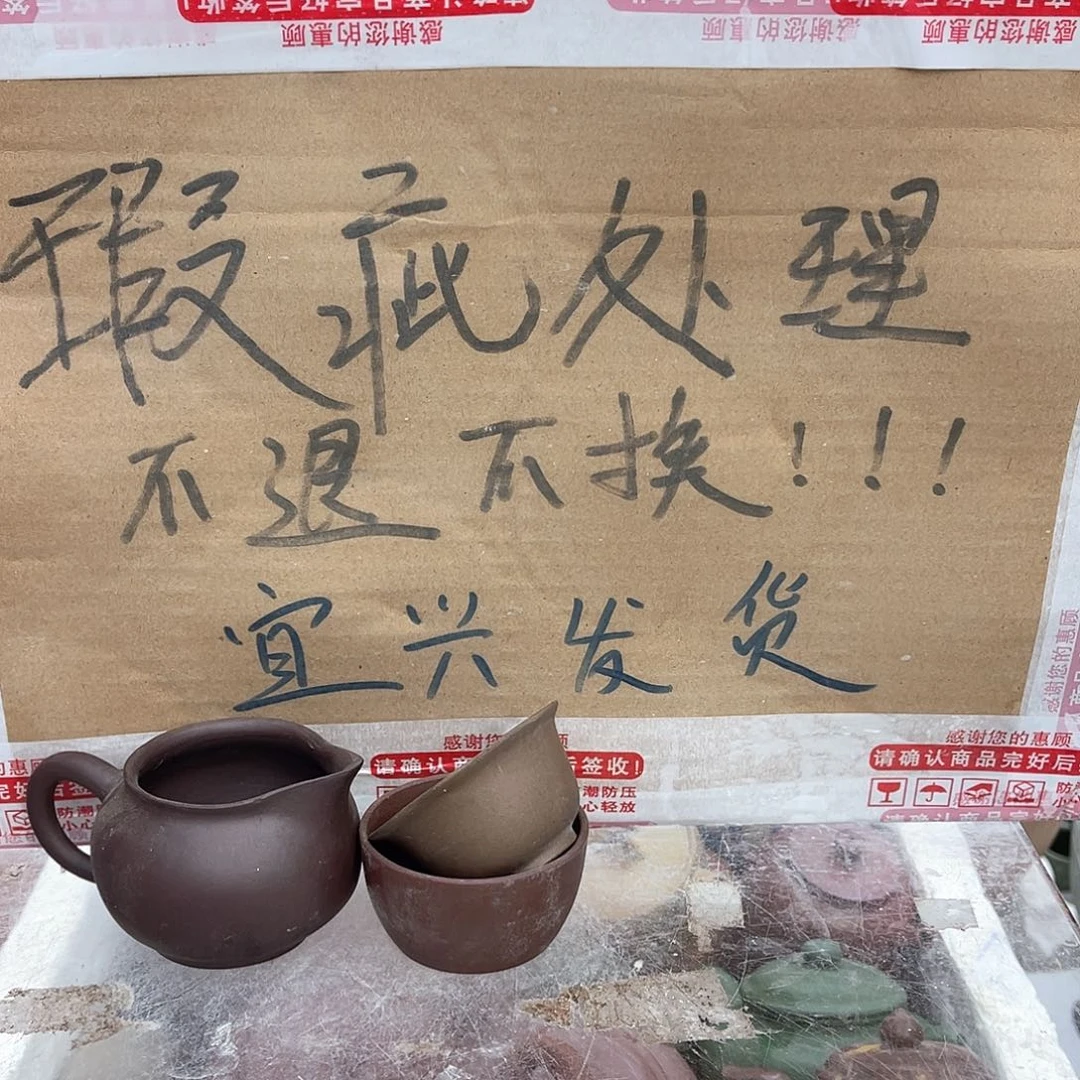 感谢您的惠顾
感谢您的惠顾
感谢您的惠顾
瑕疵处理
不退不换！！！
宜兴发货
感谢您的惠顾
感谢您 顾
请确认商 后签收!
防潮防压
小心轻放
感谢您的惠顾
请确认商品完好后